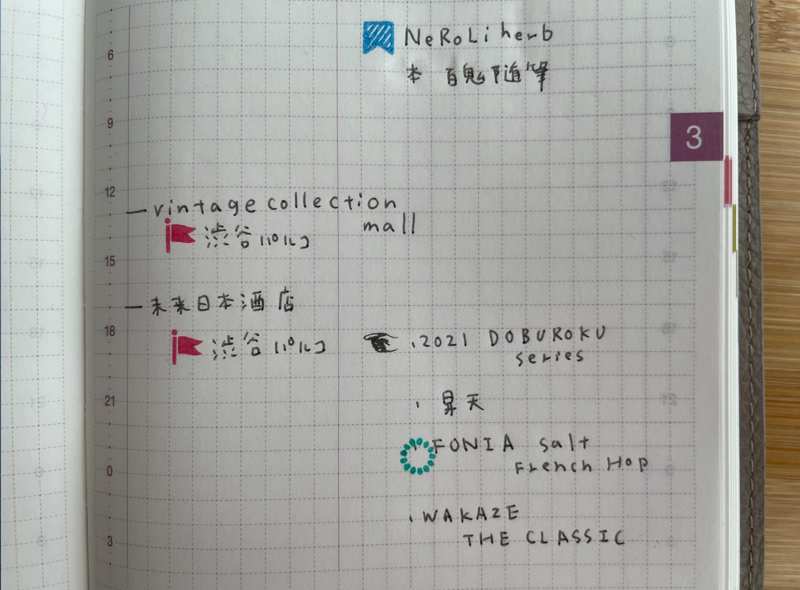 NeRoLi herb
本 百鬼随筆
3
6
9
12
15
18
21
0
3
— vintage collection
mall
渋谷パルコ
— 未来日本酒店
渋谷パルコ
・2021 DOBUROKU
series
・昇天
・FONIA salt
French Hop
・WAKAZE
THE CLASSIC